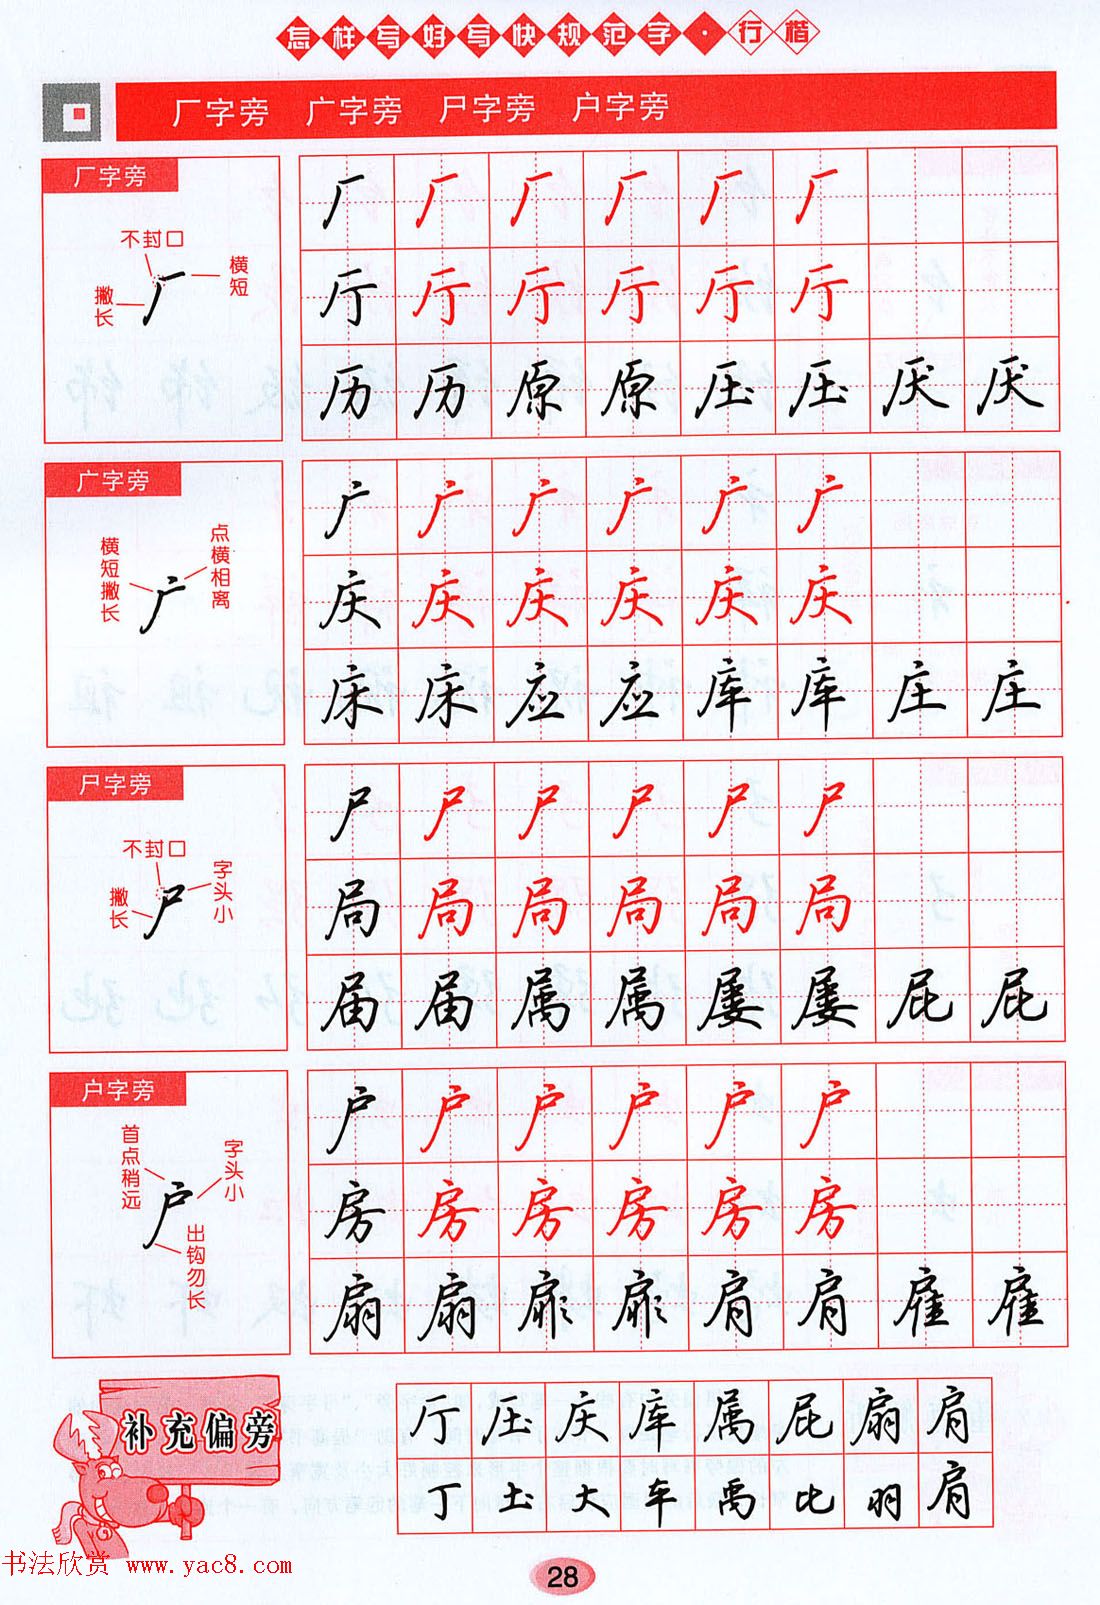 怎样写好写快规范字·行楷
厂字旁 广字旁 尸字旁 户字旁
厂字旁
不封口
横短
撇长
厂 厂 厂 厂 厂 厂
厅 厅 厅 厅 厅 厅
历 历 原 原 压 压 厌 厌
广字旁
点横相离
横短撇长
广 广 广 广 广 广
庆 庆 庆 庆 庆 庆
床 床 应 应 库 库 庄 庄
尸字旁
不封口
字头小
撇长
尸 尸 尸 尸 尸 尸
局 局 局 局 局 局
届 届 属 属 屡 屡 屁 屁
户字旁
首点稍远
字头小
出钩勿长
户 户 户 户 户 户
房 房 房 房 房 房
扇 扇 扉 扉 肩 肩 雇 雇
补充偏旁
厅 压 庆 库 属 屁 扇 肩
丁 土 大 车 禹 比 羽 肩
书法欣赏 www.yac8.com
28